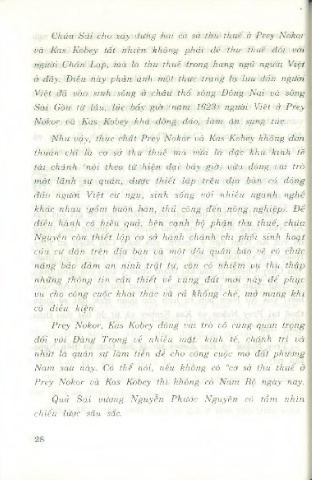 Chúa Sãi cho xây dựng hai cơ sở thu thuế ở Prey Nokor
và Kas Kobey tất nhiên không phải để thu thuế đối với
người Chân Lạp, mà là thu thuế trong hàng ngũ người Việt
ở đây. Điều này phản ánh một thực trạng là lưu dân người
Việt đã vào sinh sống ở châu thổ sông Đồng Nai và sông
Sài Gòn từ lâu, lúc bấy giờ (năm 1623) người Việt ở Prey
Nokor và Kas Kobey khá đông đảo, làm ăn sung túc.
Như vậy, thực chất Prey Nokor và Kas Kobey không đơn
thuần chỉ là cơ sở thu thuế mà vừa là đặc khu kinh tế
tài chánh (nói theo từ hiện đại bây giờ) vừa đóng vai trò
một lãnh sự quán, được thiết lập trên địa bàn có đông
đảo người Việt cư ngụ, sinh sống với nhiều ngành nghề
khác nhau (gồm buôn bán, thủ công đến nông nghiệp). Để
điều hành có hiệu quả, bên cạnh bộ phận thu thuế, chúa
Nguyễn còn thiết lập cơ sở hành chánh chi phối sinh hoạt
của cư dân trên địa bàn và một đội quân bảo vệ có chức
năng bảo đảm an ninh trật tự, còn có nhiệm vụ thu thập
những thông tin cần thiết về vùng đất mới này để phục
vụ cho công cuộc khai thác và cả khống chế, mở mang khi
có điều kiện
Prey Nokor, Kas Kobey đóng vai trò vô cùng quan trọng
đối với Đàng Trong về nhiều mặt, kinh tế, chánh trị và
nhứt là quân sự làm tiền đề cho công cuộc mở đất phương
Nam sau này. Có thể nói, nếu không có "cơ sở thu thuế ở
Prey Nokor và Kas Kobey thì không có Nam Bộ ngày nay.
Quả Sãi vương Nguyễn Phước Nguyên có tầm nhìn
chiến lược sâu sắc.
28